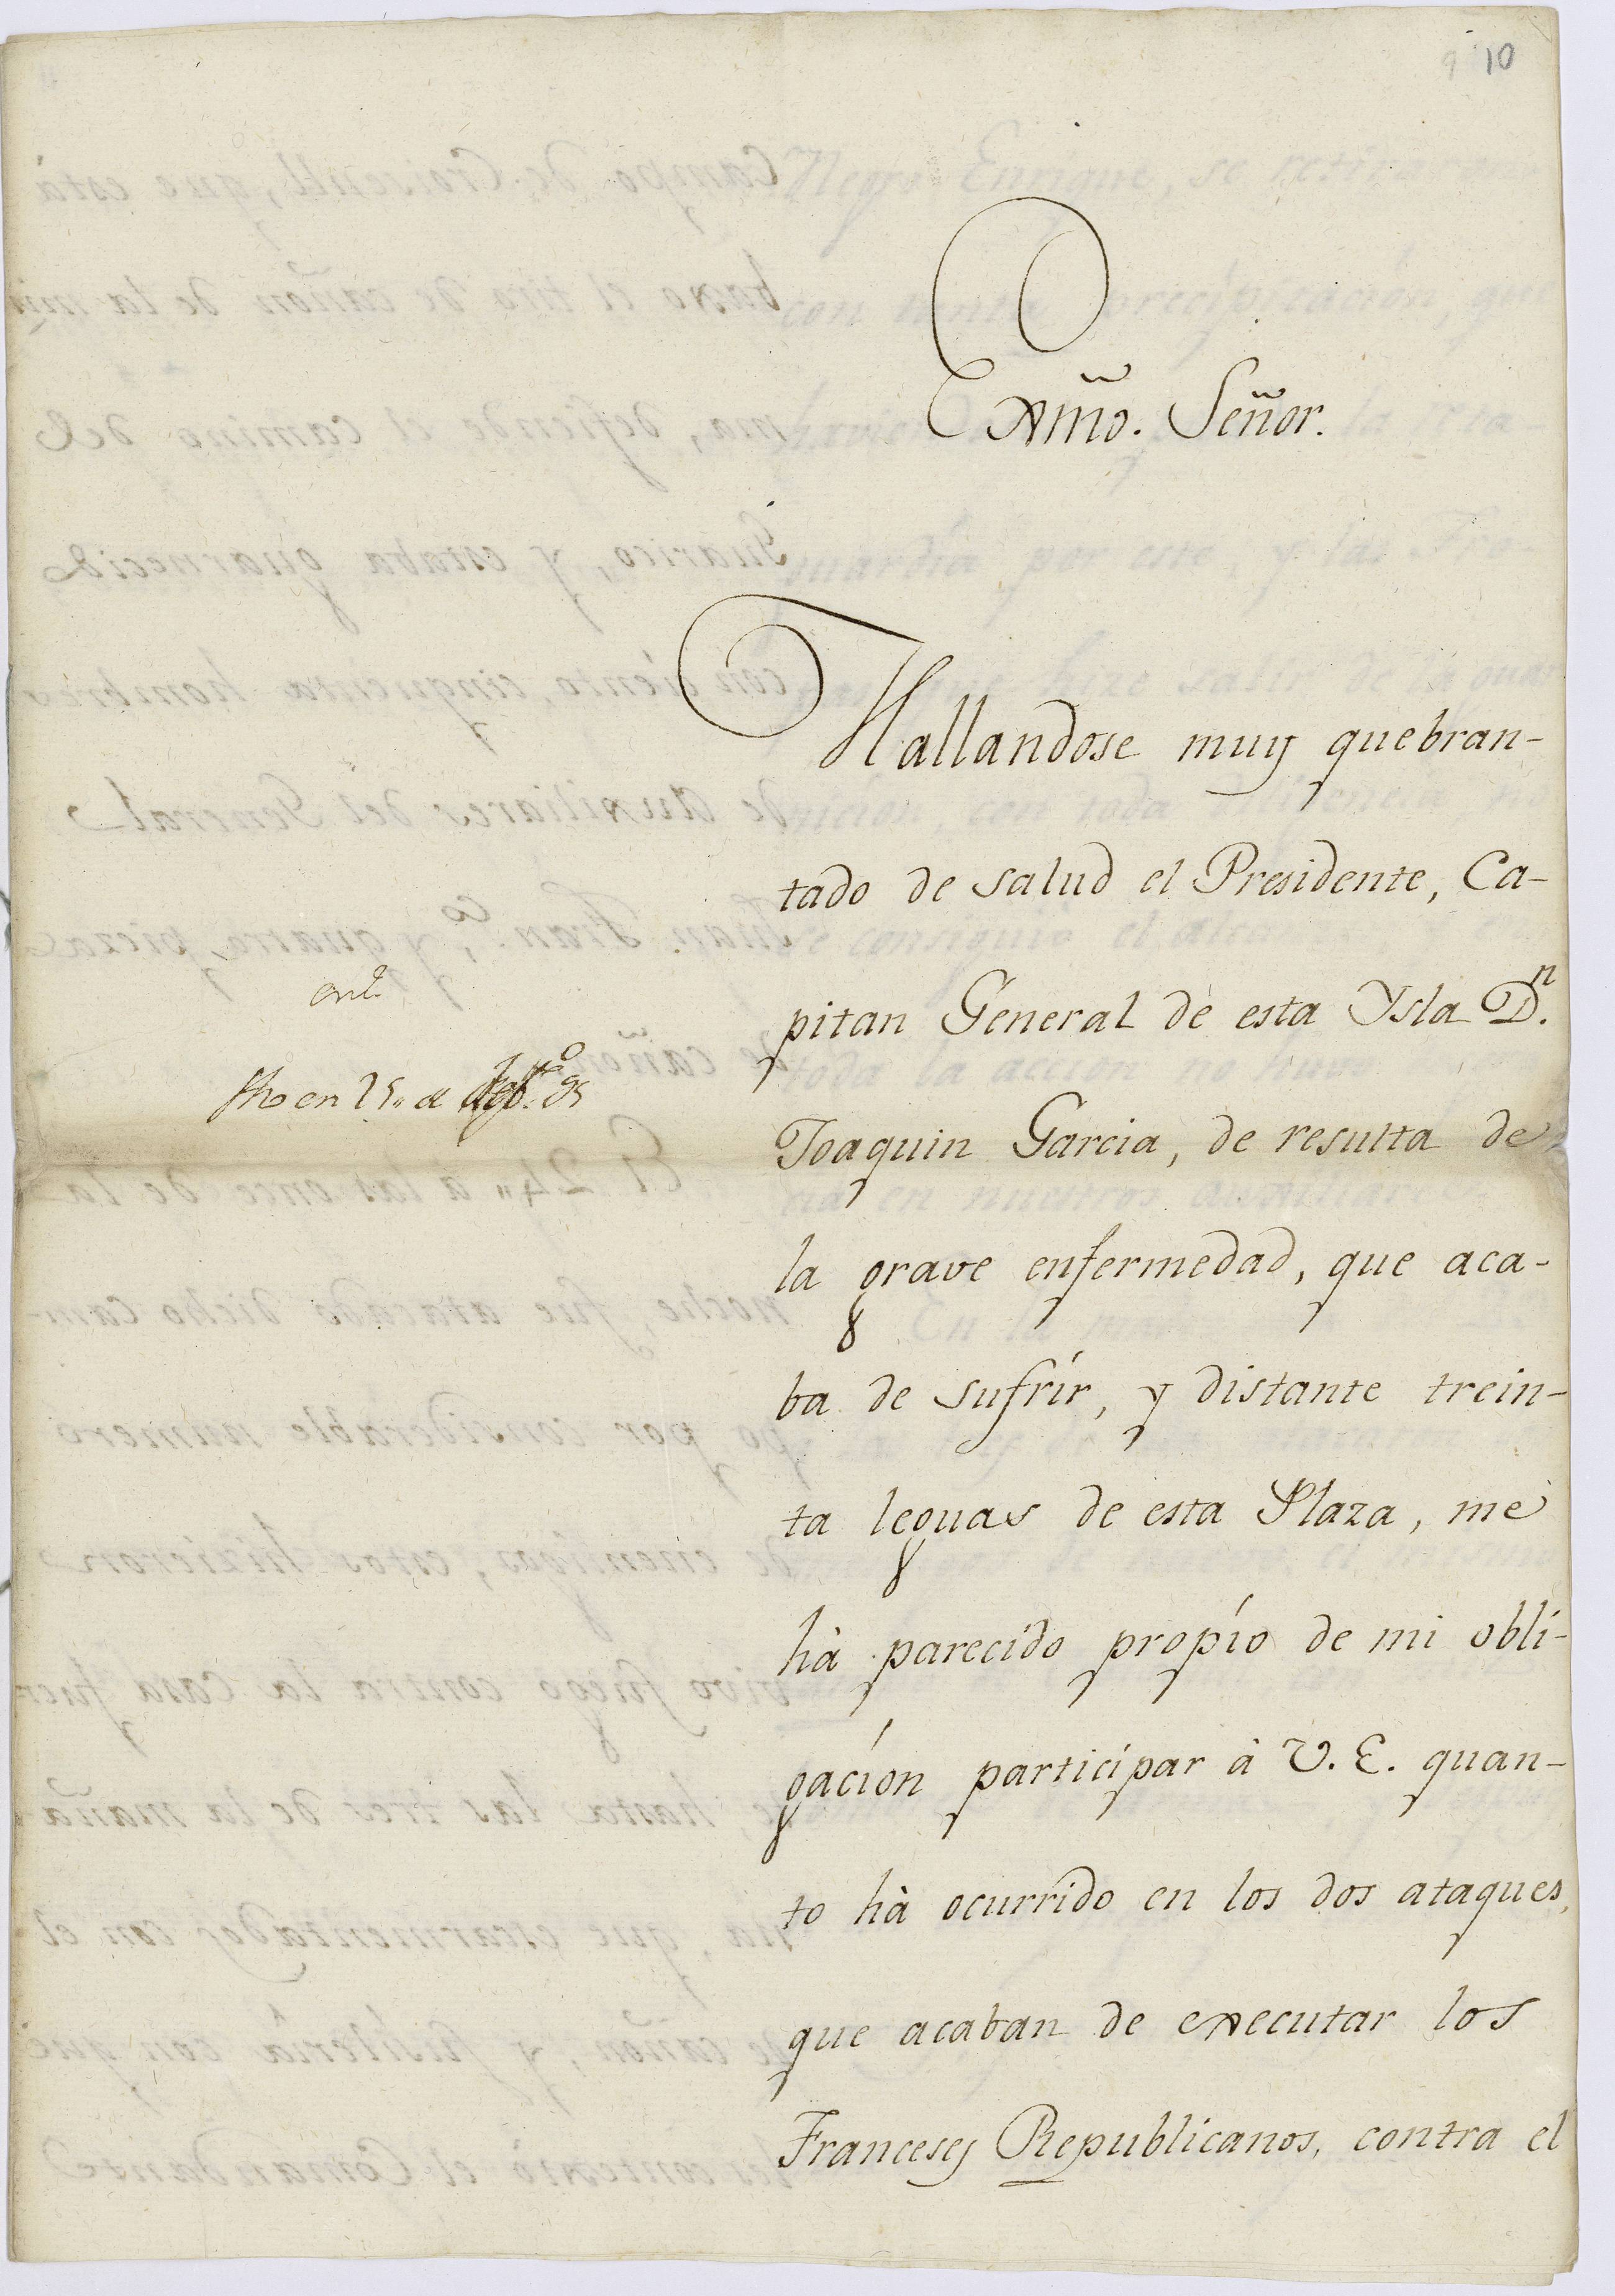 10
Exmô. Señor.
Hallandose muy quebran-
tado de salud el Presidente, Ca-
pitan General de esta Ysla Dⁿ.
Joaquin Garcia, de resulta de
la grave enfermedad, que aca-
ba de sufrir, y distante trein-
ta leguas de esta Plaza, me
hà parecido propio de mi obli-
gacion participar à V. E. quan-
to hà ocurrido en los dos ataques,
que acaban de executar los
Franceses Republicanos, contra el
fho en 25